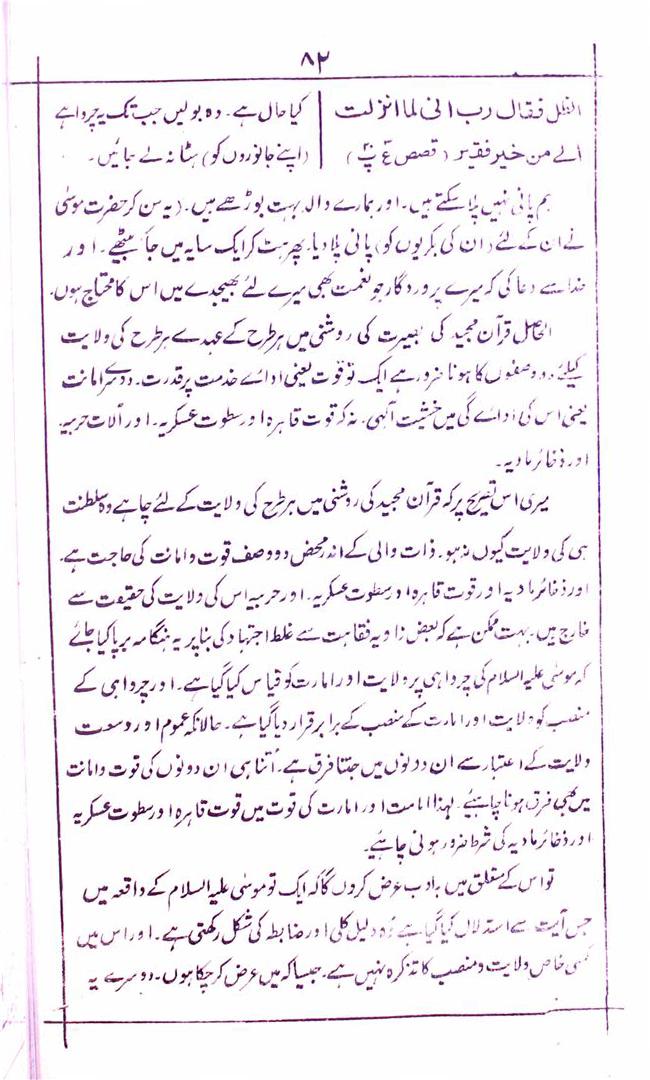 ۸۲
الظل فقال رب انی لما انزلت
الی من خیر فقیر (قصص ع پ ۲۰)
کیا حال ہے۔ وہ بولیں جب تک یہ چرواہے
(اپنے جانوروں کو) ہٹا نہ لے جائیں۔
ہم پانی نہیں پلا سکتے ہیں۔ اور ہمارے والد بہت بوڑھے ہیں۔ (یہ سن کر حضرت موسٰی
نے ان کے لئے (ان کی بکریوں کو) پانی پلا دیا۔ پھر ہٹ کر ایک سایہ میں جا بیٹھے۔ اور
خدا سے دعا کی کہ میرے پروردگار جو نعمت بھی میرے لئے بھیجدے میں اس کا محتاج ہوں۔
الحاصل قرآن مجید کی بصیرت کی روشنی میں ہر طرح کے عہدے ہر طرح کی ولایت
کیلئے دو وصفوں کا ہونا ضرور ہے ایک تو قوت یعنی ادائے خدمت پر قدرت۔ دوسرے امانت
یعنی اس کی ادائے گی میں خشیت الٰہی۔ نہ کہ قوت قاہرہ اور سطوت عسکریہ۔ اور آلات حربیہ
اور ذخائر مادیہ۔
میری اس تشریح پر کہ قرآن مجید کی روشنی میں ہر طرح کی ولایت کے لئے چاہے وہ سلطنت
ہی کی ولایت کیوں نہ ہو۔ ذات والی کے اندر محض دو وصف قوت و امانت کی حاجت ہے۔
اور ذخائر مادیہ اور قوت قاہرہ اور سطوت عسکریہ۔ اور حربیہ اس کی ولایت کی حقیقت سے
خارج ہیں۔ بہت ممکن ہے کہ بعض زاویہ فقاہت سے غلط اجتہاد کی بنا پر یہ ہنگامہ برپا کیا جائے
کہ موسٰی علیہ السلام کی چرواہی پر ولایت اور امارت کو قیاس کیا گیا ہے۔ اور چرواہی کے
منصب کو ولایت اور امارت کے منصب کے برابر قرار دیا گیا ہے۔ حالانکہ عموم اور وسعت
ولایت کے اعتبار سے ان دونوں میں جتنا فرق ہے۔ اُتنا ہی ان دونوں کی قوت و امانت
میں بھی فرق ہونا چاہیئے۔ لہذا امامت اور امارت کی قوت میں قوت قاہرہ اور سطوت عسکریہ
اور ذخائر مادیہ کی شرط ضرور ہونی چاہیے۔
تو اس کے متعلق میں بادب عرض کروں گا کہ ایک تو موسٰی علیہ السلام کے واقعہ میں
جس آیت سے استدلال کیا گیا ہے وُہ دلیل کلی اور ضابطہ کی شکل رکھتی ہے۔ اور اس میں
کسی خاص ولایت و منصب کا تذکرہ نہیں ہے۔ جیسا کہ میں عرض کر چکا ہوں۔ دوسرے یہ